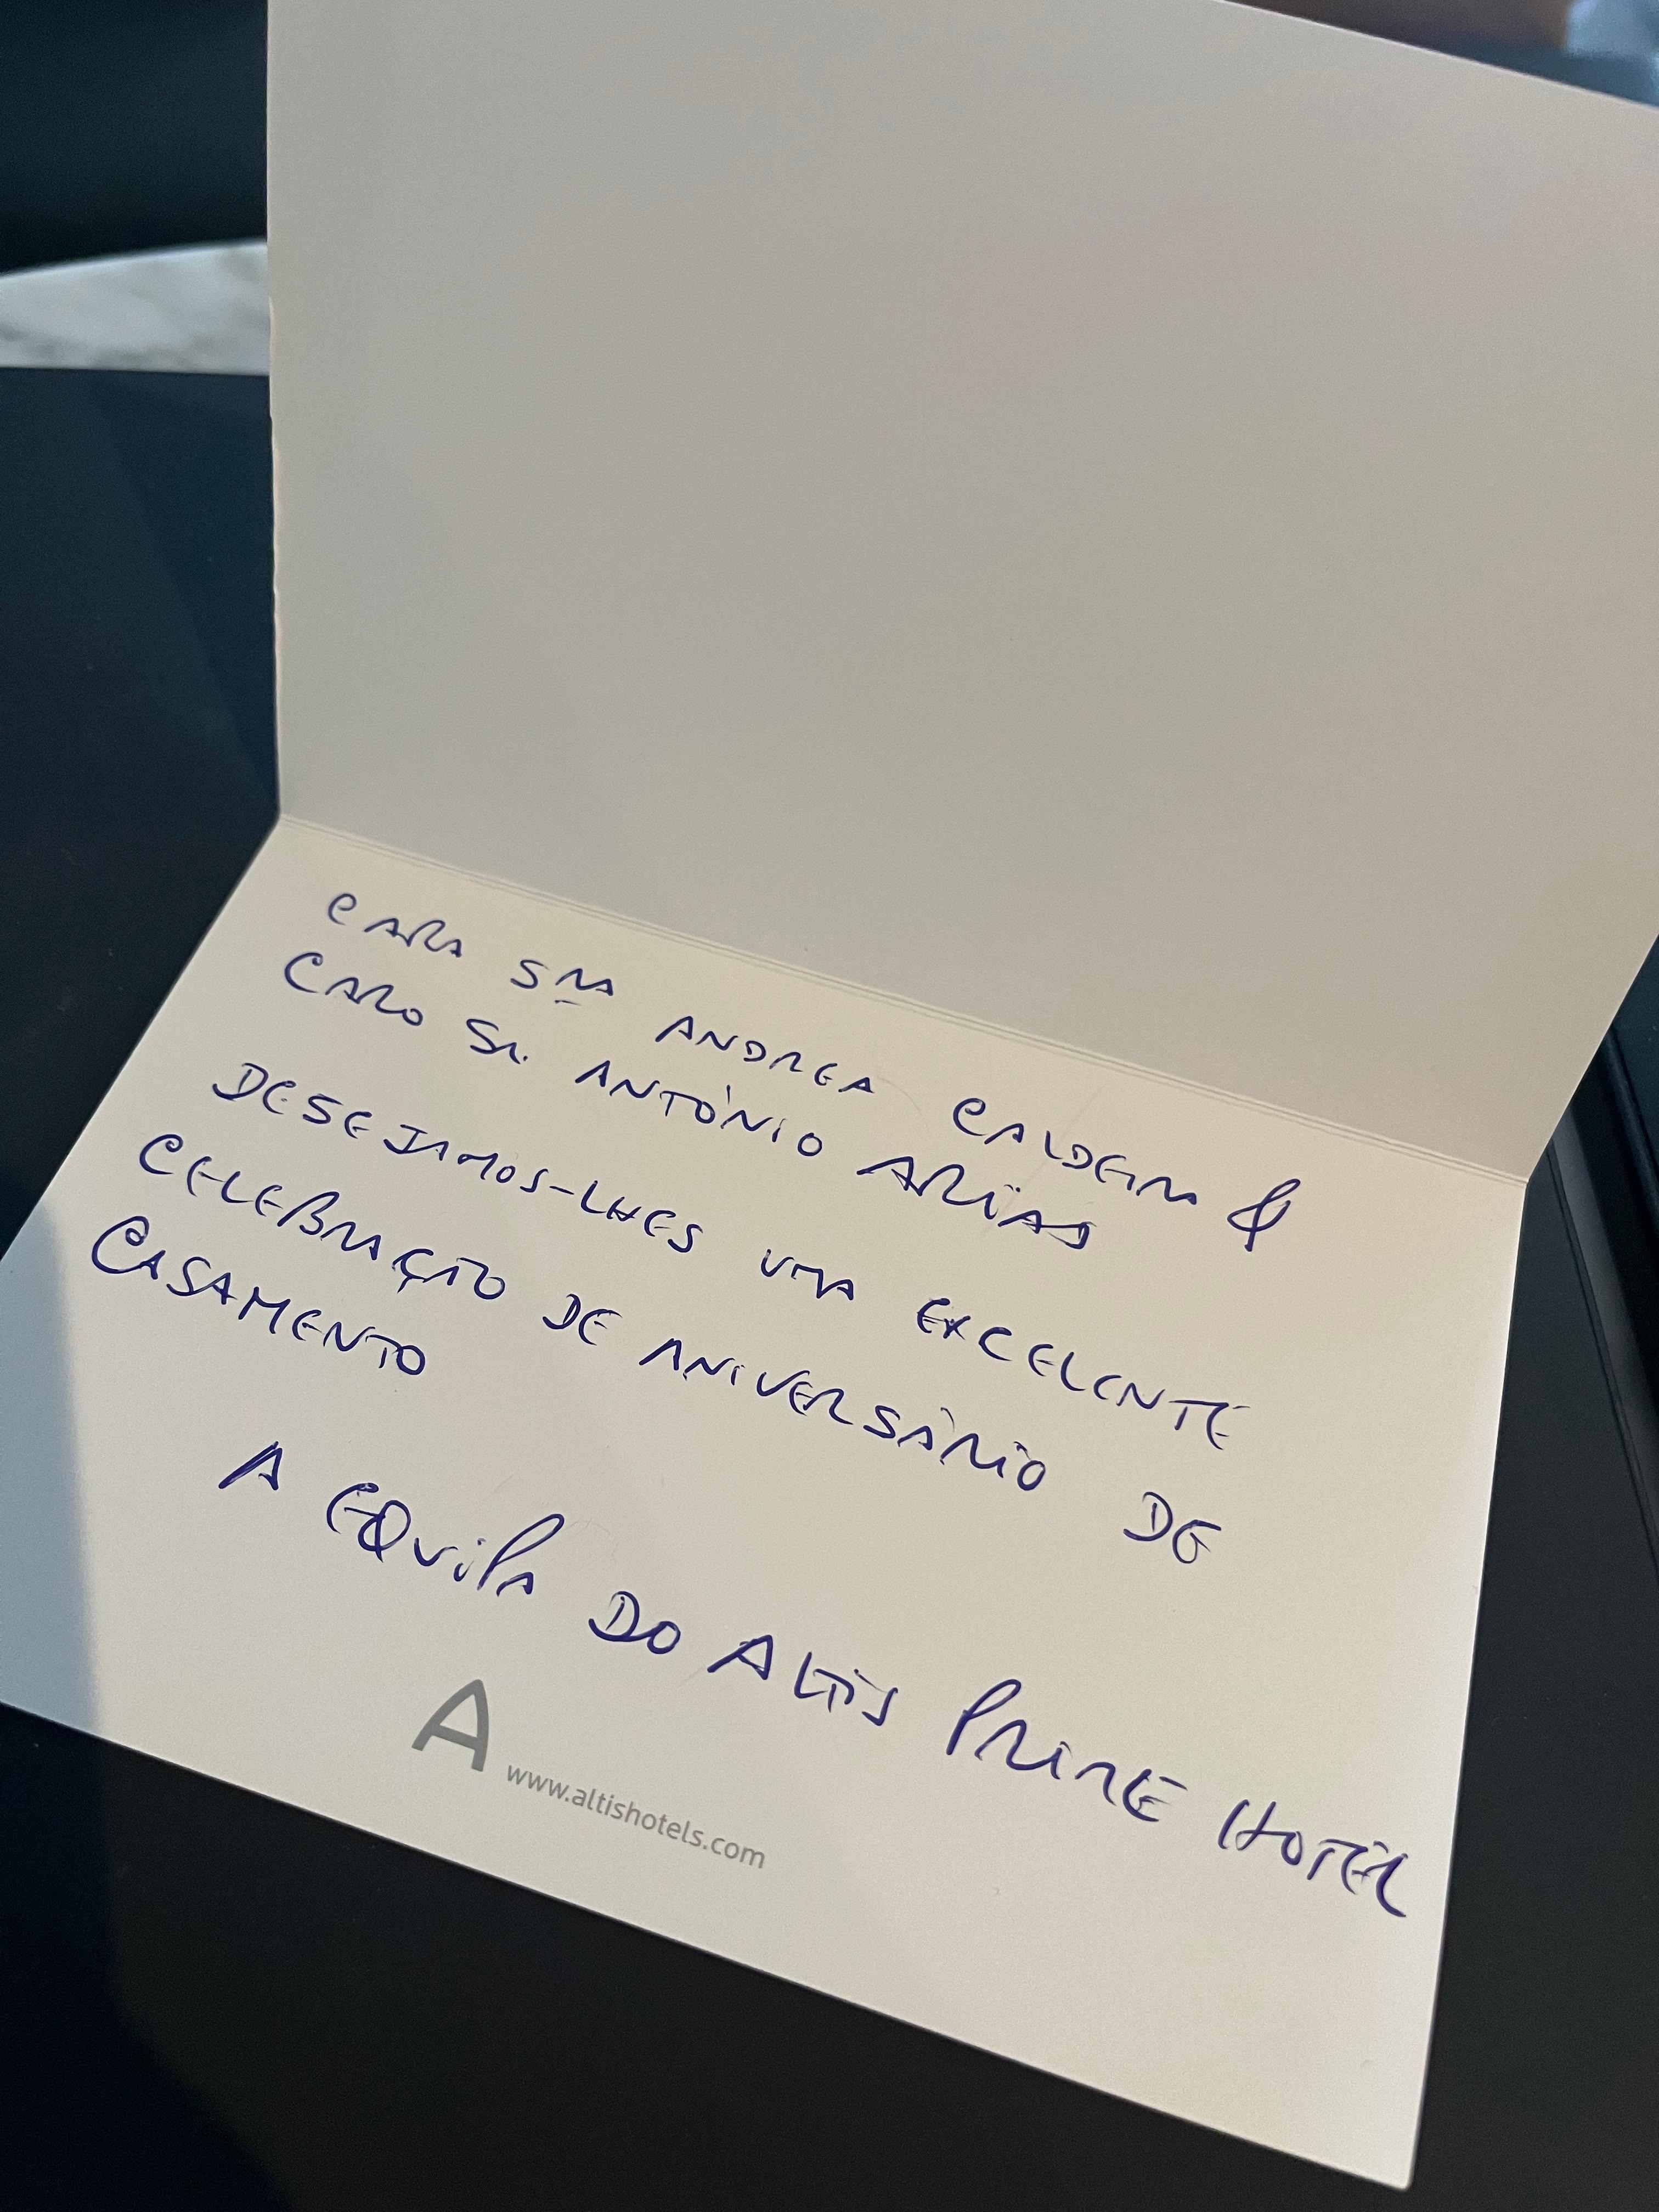 CARA SRA ANDREA CALDEIRA &
CARO SR. ANTÓNIO ARIAS
DESEJAMOS-LHES UMA EXCELENTE
CELEBRAÇÃO DE ANIVERSÁRIO DE
CASAMENTO
A EQUIPA DO ALTIS PRIME HOTEL
A www.altishotels.com